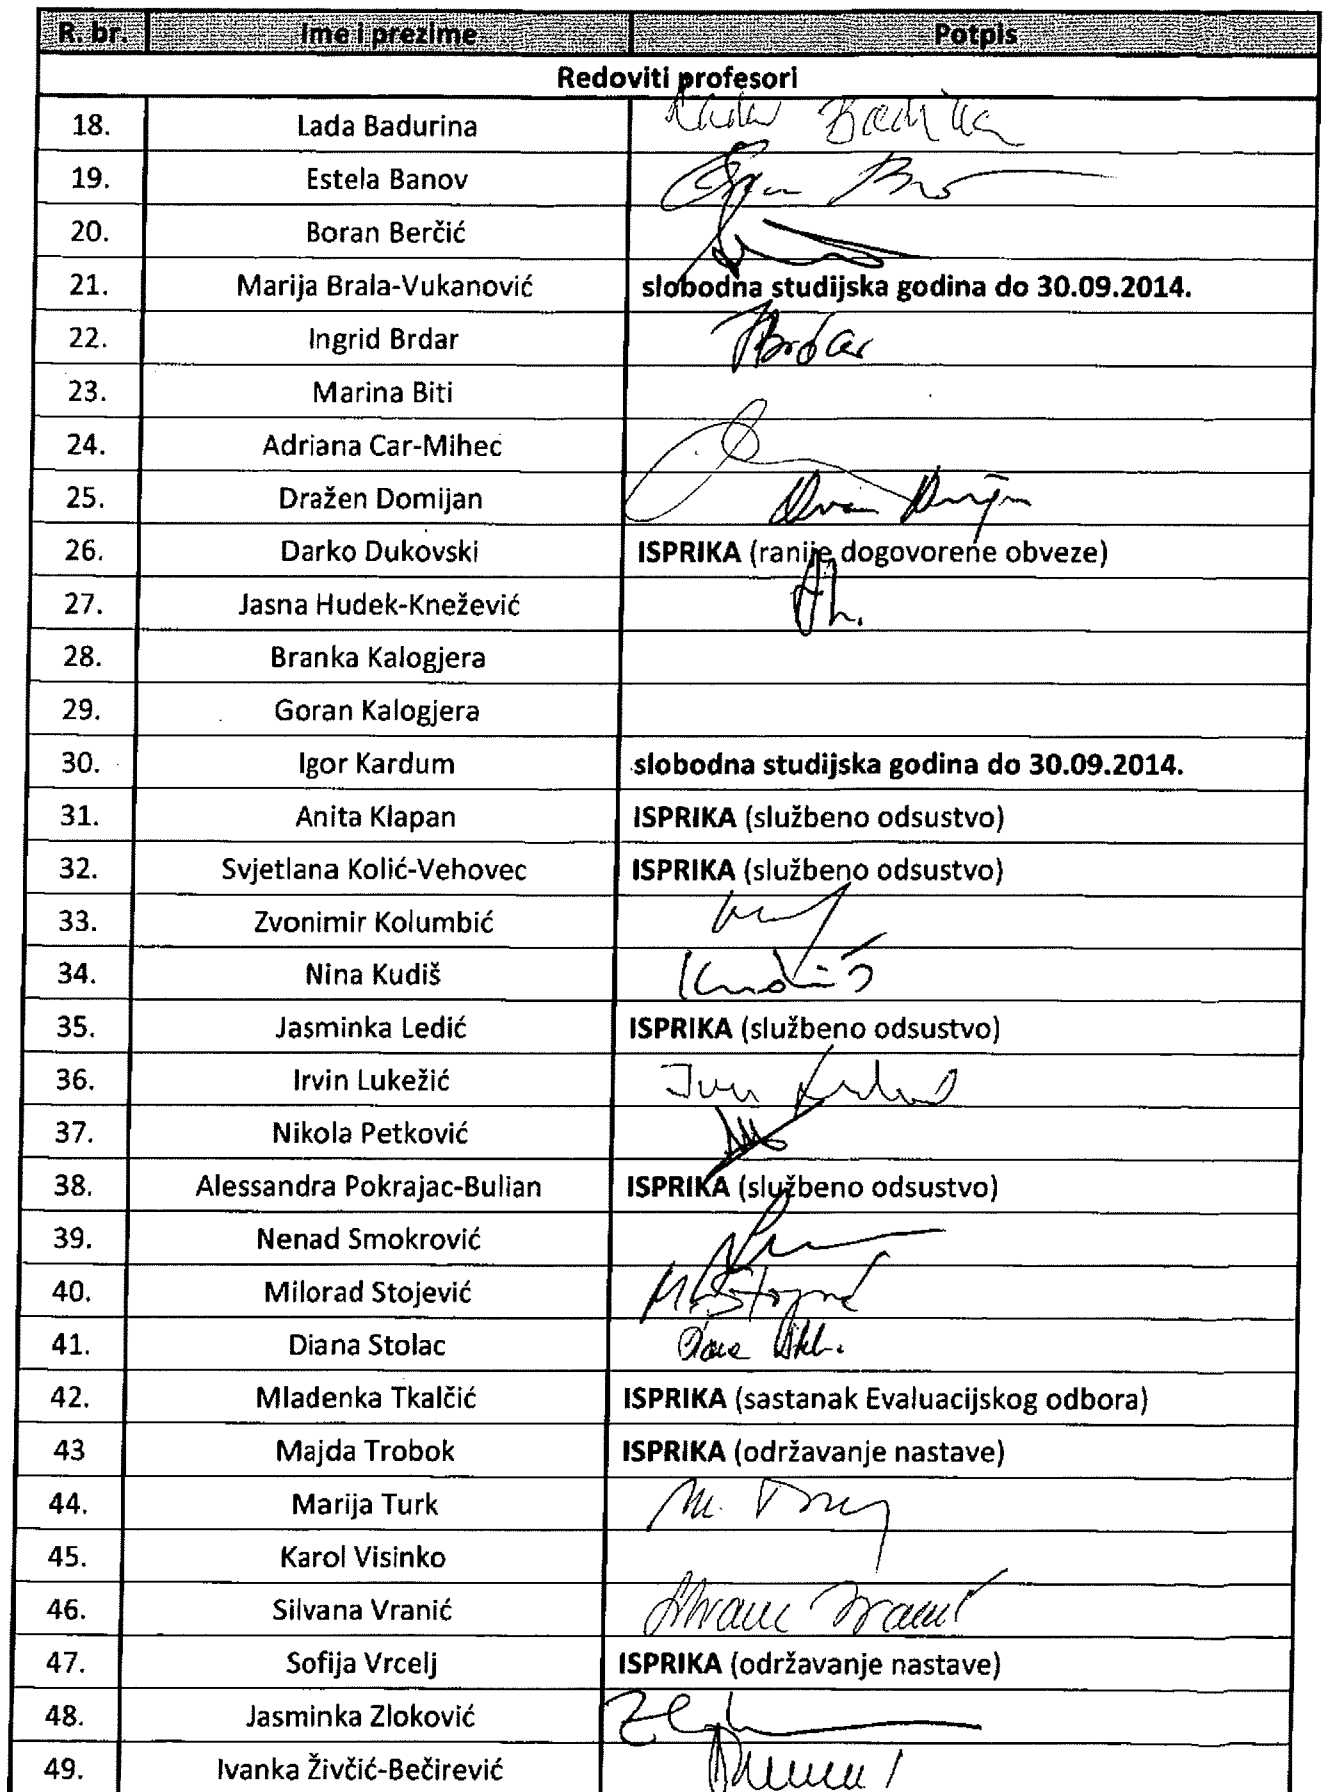 R. br. Ime i prezime Potpis
Redoviti profesori
18. Lada Badurina
19. Estela Banov
20. Boran Berčić
21. Marija Brala-Vukanović slobodna studijska godina do 30.09.2014.
22. Ingrid Brdar Brdar
23. Marina Biti
24. Adriana Car-Mihec
25. Dražen Domijan
26. Darko Dukovski ISPRIKA (ranije dogovorene obveze)
27. Jasna Hudek-Knežević
28. Branka Kalogjera
29. Goran Kalogjera
30. Igor Kardum slobodna studijska godina do 30.09.2014.
31. Anita Klapan ISPRIKA (službeno odsustvo)
32. Svjetlana Kolić-Vehovec ISPRIKA (službeno odsustvo)
33. Zvonimir Kolumbić
34. Nina Kudiš Kudiš
35. Jasminka Ledić ISPRIKA (službeno odsustvo)
36. Irvin Lukežić
37. Nikola Petković
38. Alessandra Pokrajac-Bulian ISPRIKA (službeno odsustvo)
39. Nenad Smokrović
40. Milorad Stojević
41. Diana Stolac
42. Mladenka Tkalčić ISPRIKA (sastanak Evaluacijskog odbora)
43 Majda Trobok ISPRIKA (održavanje nastave)
44. Marija Turk
45. Karol Visinko
46. Silvana Vranić
47. Sofija Vrcelj ISPRIKA (održavanje nastave)
48. Jasminka Zloković
49. Ivanka Živčić-Bečirević